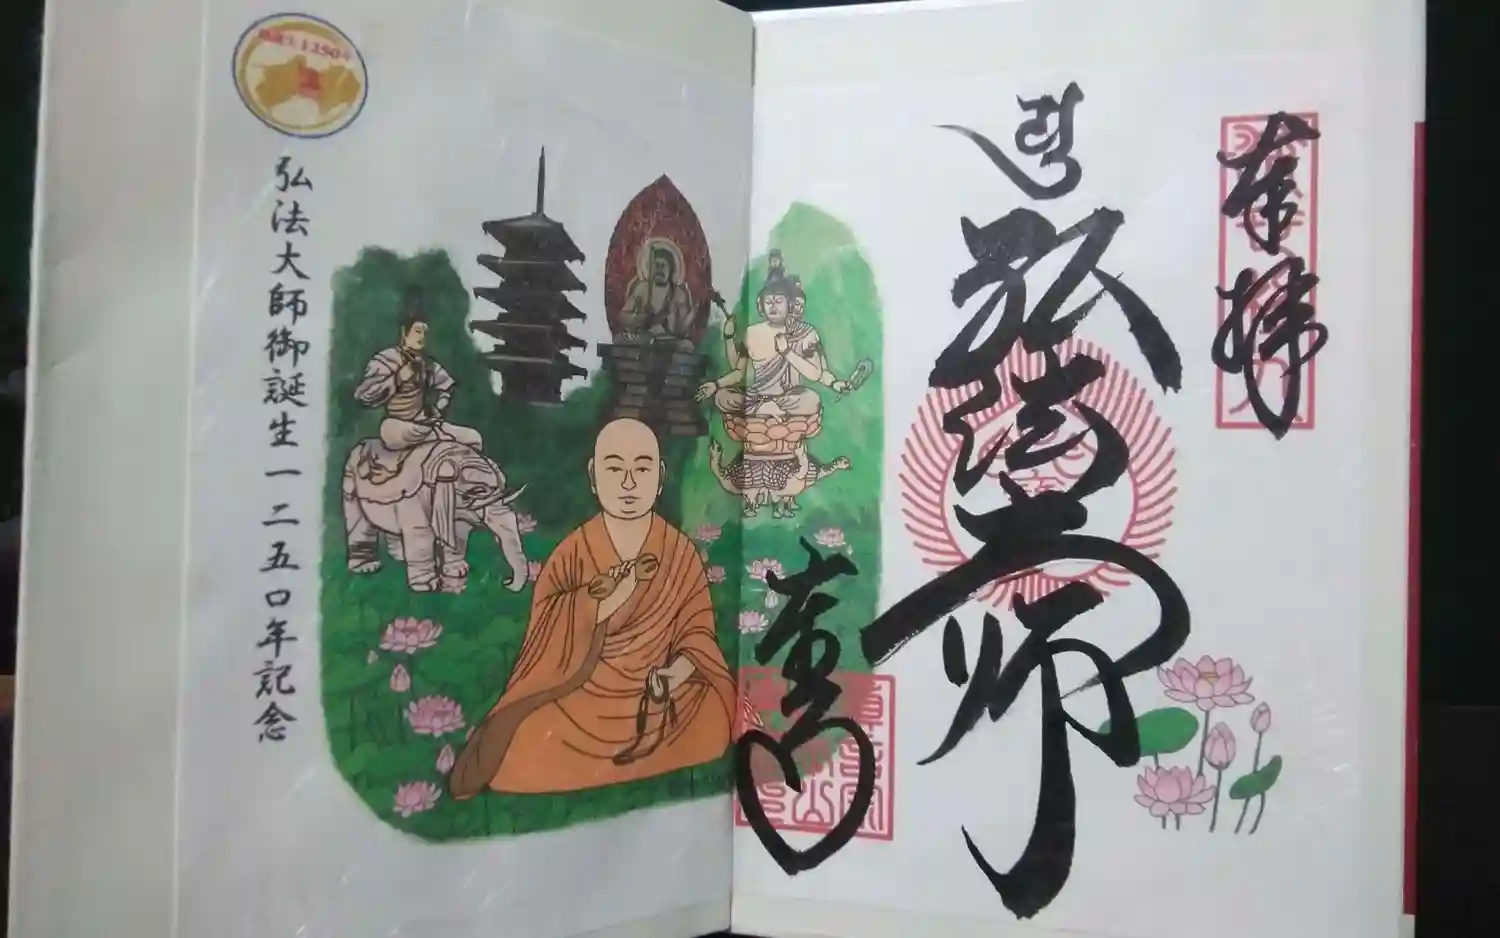 奉拝
弘法大師
東寺
弘法大師御誕生一二五〇年記念
1250年